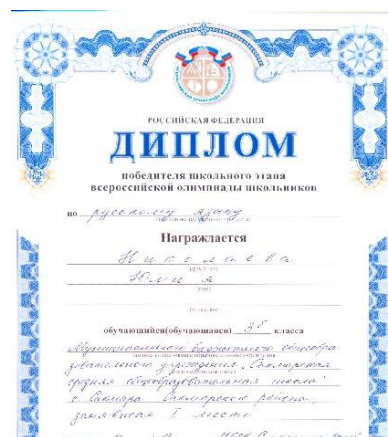 РОССИЙСКАЯ ФЕДЕРАЦИЯ
ДИПЛОМ
победителя школьного этапа
всероссийской олимпиады школьников
по русскому языку
Награждается
Николаева
(фамилия)
Юлия
(имя)
обучающийся(обучающаяся) 3 класса
Муниципального бюджетного общеобра-
зовательного учреждения
средняя общеобразовательная школа"
с. района,
занявшая I место